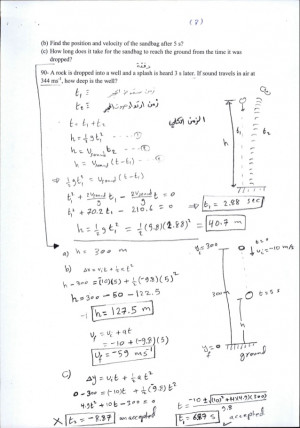 (8)
(b) Find the position and velocity of the sandbag after 5 s?
(c) How long does it take for the sandbag to reach the ground from the time it was
dropped?
90- A rock is dropped into a well and a splash is heard 3 s later. If sound travels in air at
344 ms⁻¹, how deep is the well?
t₁ ≡
t₂ ≡
t = t₁ + t₂
الزمن الكلي
h = ½ g t₁² --- ①
h = v_sound t₂ --- ②
h = v_sound (t - t₁) ---
⇒ ½ g t₁² = v_sound (t - t₁)
t₁² + 2v_sound/g t₁ - 2v_sound/g t = 0
t₁² + 70.2 t₁ - 210.6 = 0 ⇒ t₁ = 2.88 sec
h = ½ g t₁² = ½ (9.8)(2.88)² = 40.7 m
h
t₁
t₂
a) h = 300 m
b) Δx = v₁t + ½ a t²
h - 300 = (-10)(5) + ½ (-9.8)(5)²
h = 300 - 50 - 122.5
h = 127.5 m
v_f = v_i + at
= -10 + (-9.8)(5)
v_f = -59 ms⁻¹
y = 300
t = 0
v_i = -10 m/s
300
t = 5 s
h
y = 0
ground
c) Δy = v_i t + ½ a t²
0 - 300 = (-10)t + ½ (-9.8) t²
4.9t² + 10t - 300 = 0
t = -10 ± √(10)² + 4×4.9×300 / 9.8
X t₂ = -8.87 unaccepted
t₁ = 6.87 s accepted